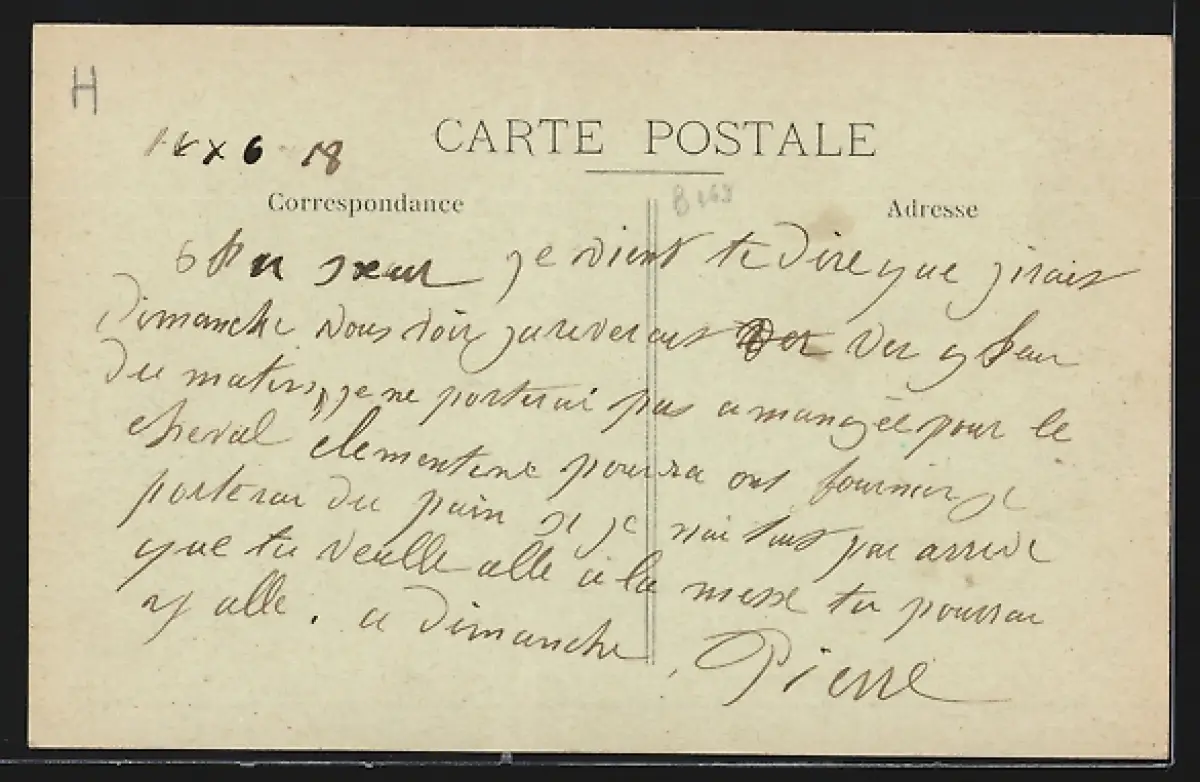 H
CARTE POSTALE
6 18
Correspondance
Adresse
je vient te dire que j irais
Dimanche nous voir jareverais ver 9 heur
Du matin, je ne porterai pas a mangée pour le
cheval clementine pourra ont fournir je
porterai du pain si je n'ai pas arrive
que tu veulle alle a la messe tu pourrai
y alle . a Dimanche
Pierre